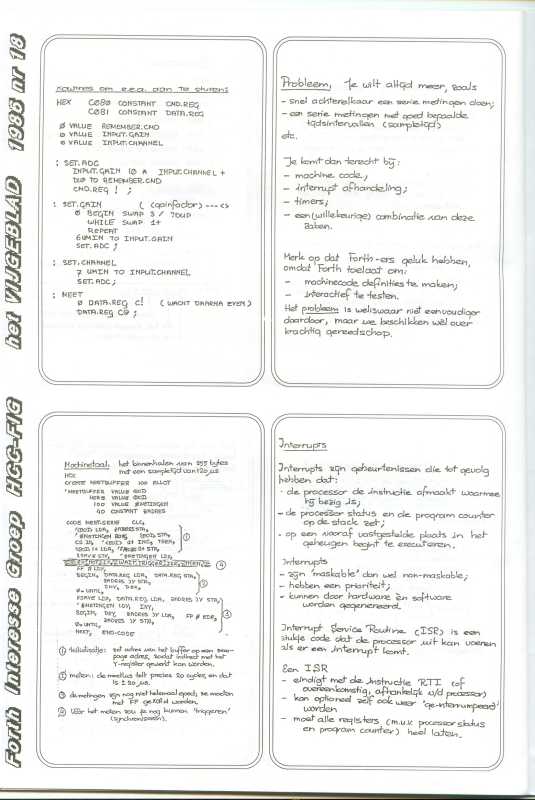 het VIJGEBLAD 1985 nr 18
Forth Interesse Groep HCC-FIG
Routines om e.e.a. aan te sturen:
HEX C080 CONSTANT CMD.REG
C081 CONSTANT DATA.REG
0 VALUE REMEMBER.CMD
0 VALUE INPUT.GAIN
0 VALUE INPUT.CHANNEL
: SET.ADC
INPUT.GAIN 10 * INPUT.CHANNEL +
DUP TO REMEMBER.CMD
CMD.REG ! ;
: SET.GAIN ( (gainfactor) ---<>
0 BEGIN SWAP 3 / ?DUP
WHILE SWAP 1+
REPEAT
6 UMIN TO INPUT.GAIN
SET.ADC ;
: SET.CHANNEL
7 UMIN TO INPUT.CHANNEL
SET.ADC ;
: MEET
0 DATA.REG C! ( WACHT DAARNA EVEN )
DATA.REG C@ ;
Probleem, Je wilt altijd meer, zoals
- snel achterelkaar een serie metingen doen;
- een serie metingen met goed bepaalde
tijdsintervallen (sampletijd)
etc.
Je komt dan terecht bij:
- machine code;
- interrupt afhandeling;
- timers;
- een (willekeurige) combinatie van deze
zaken.
Merk op dat Forth-ers geluk hebben,
omdat Forth toelaat om:
- machinecode definities te maken;
- interactief te testen.
Het probleem is weliswaar niet eenvoudiger
daardoor, maar we beschikken wel over
krachtig gereedschap.
Machinetaal, het binnenhalen van 255 bytes
met een sampletijd van 120 µs
HEX
CREATE MEETBUFFER 100 ALLOT
MEETBUFFER VALUE
HERE VALUE
100 VALUE #METINGEN
90 CONSTANT BADRES
CODE MEET-SERIE CLC,
BEGIN, DATA.REG LDA, DATA.REG STA,
0= UNTIL,
NEXT, END-CODE
① Initialisatie: zet adres van het buffer op een zero-
page adres, zodat indirect met het
Y-register gewerkt kan worden.
② meten: de meetlus telt precies 20 cycles, en dat
is ± 20 µs.
③ de metingen zijn nog niet helemaal goed; ze moeten
met FF ge-XOR'd worden.
④ Vóór het meten zou je nog kunnen 'triggeren'
(synchroniseren).
Interrupts
Interrupts zijn gebeurtenissen die tot gevolg
hebben dat:
- de processor de instructie afmaakt waarmee
hij bezig is;
- de processor status en de program counter
op de stack zet;
- op een vooraf vastgestelde plaats in het
geheugen begint te executeren.
Interrupts
- zijn 'maskable' dan wel non-maskable;
- hebben een prioriteit;
- kunnen door hardware én software
worden gegenereerd.
Interrupt Service Routine (ISR) is een
stukje code dat de processor uit kan voeren
als er een interrupt komt.
Een ISR
- eindigt met de instructie RTI (of
overeenkomstig, afhankelijk v/d processor)
- kan optioneel zelf ook weer 'ge-interrumpeerd'
worden
- moet alle registers (m.u.v. processor status
en program counter) heel laten.